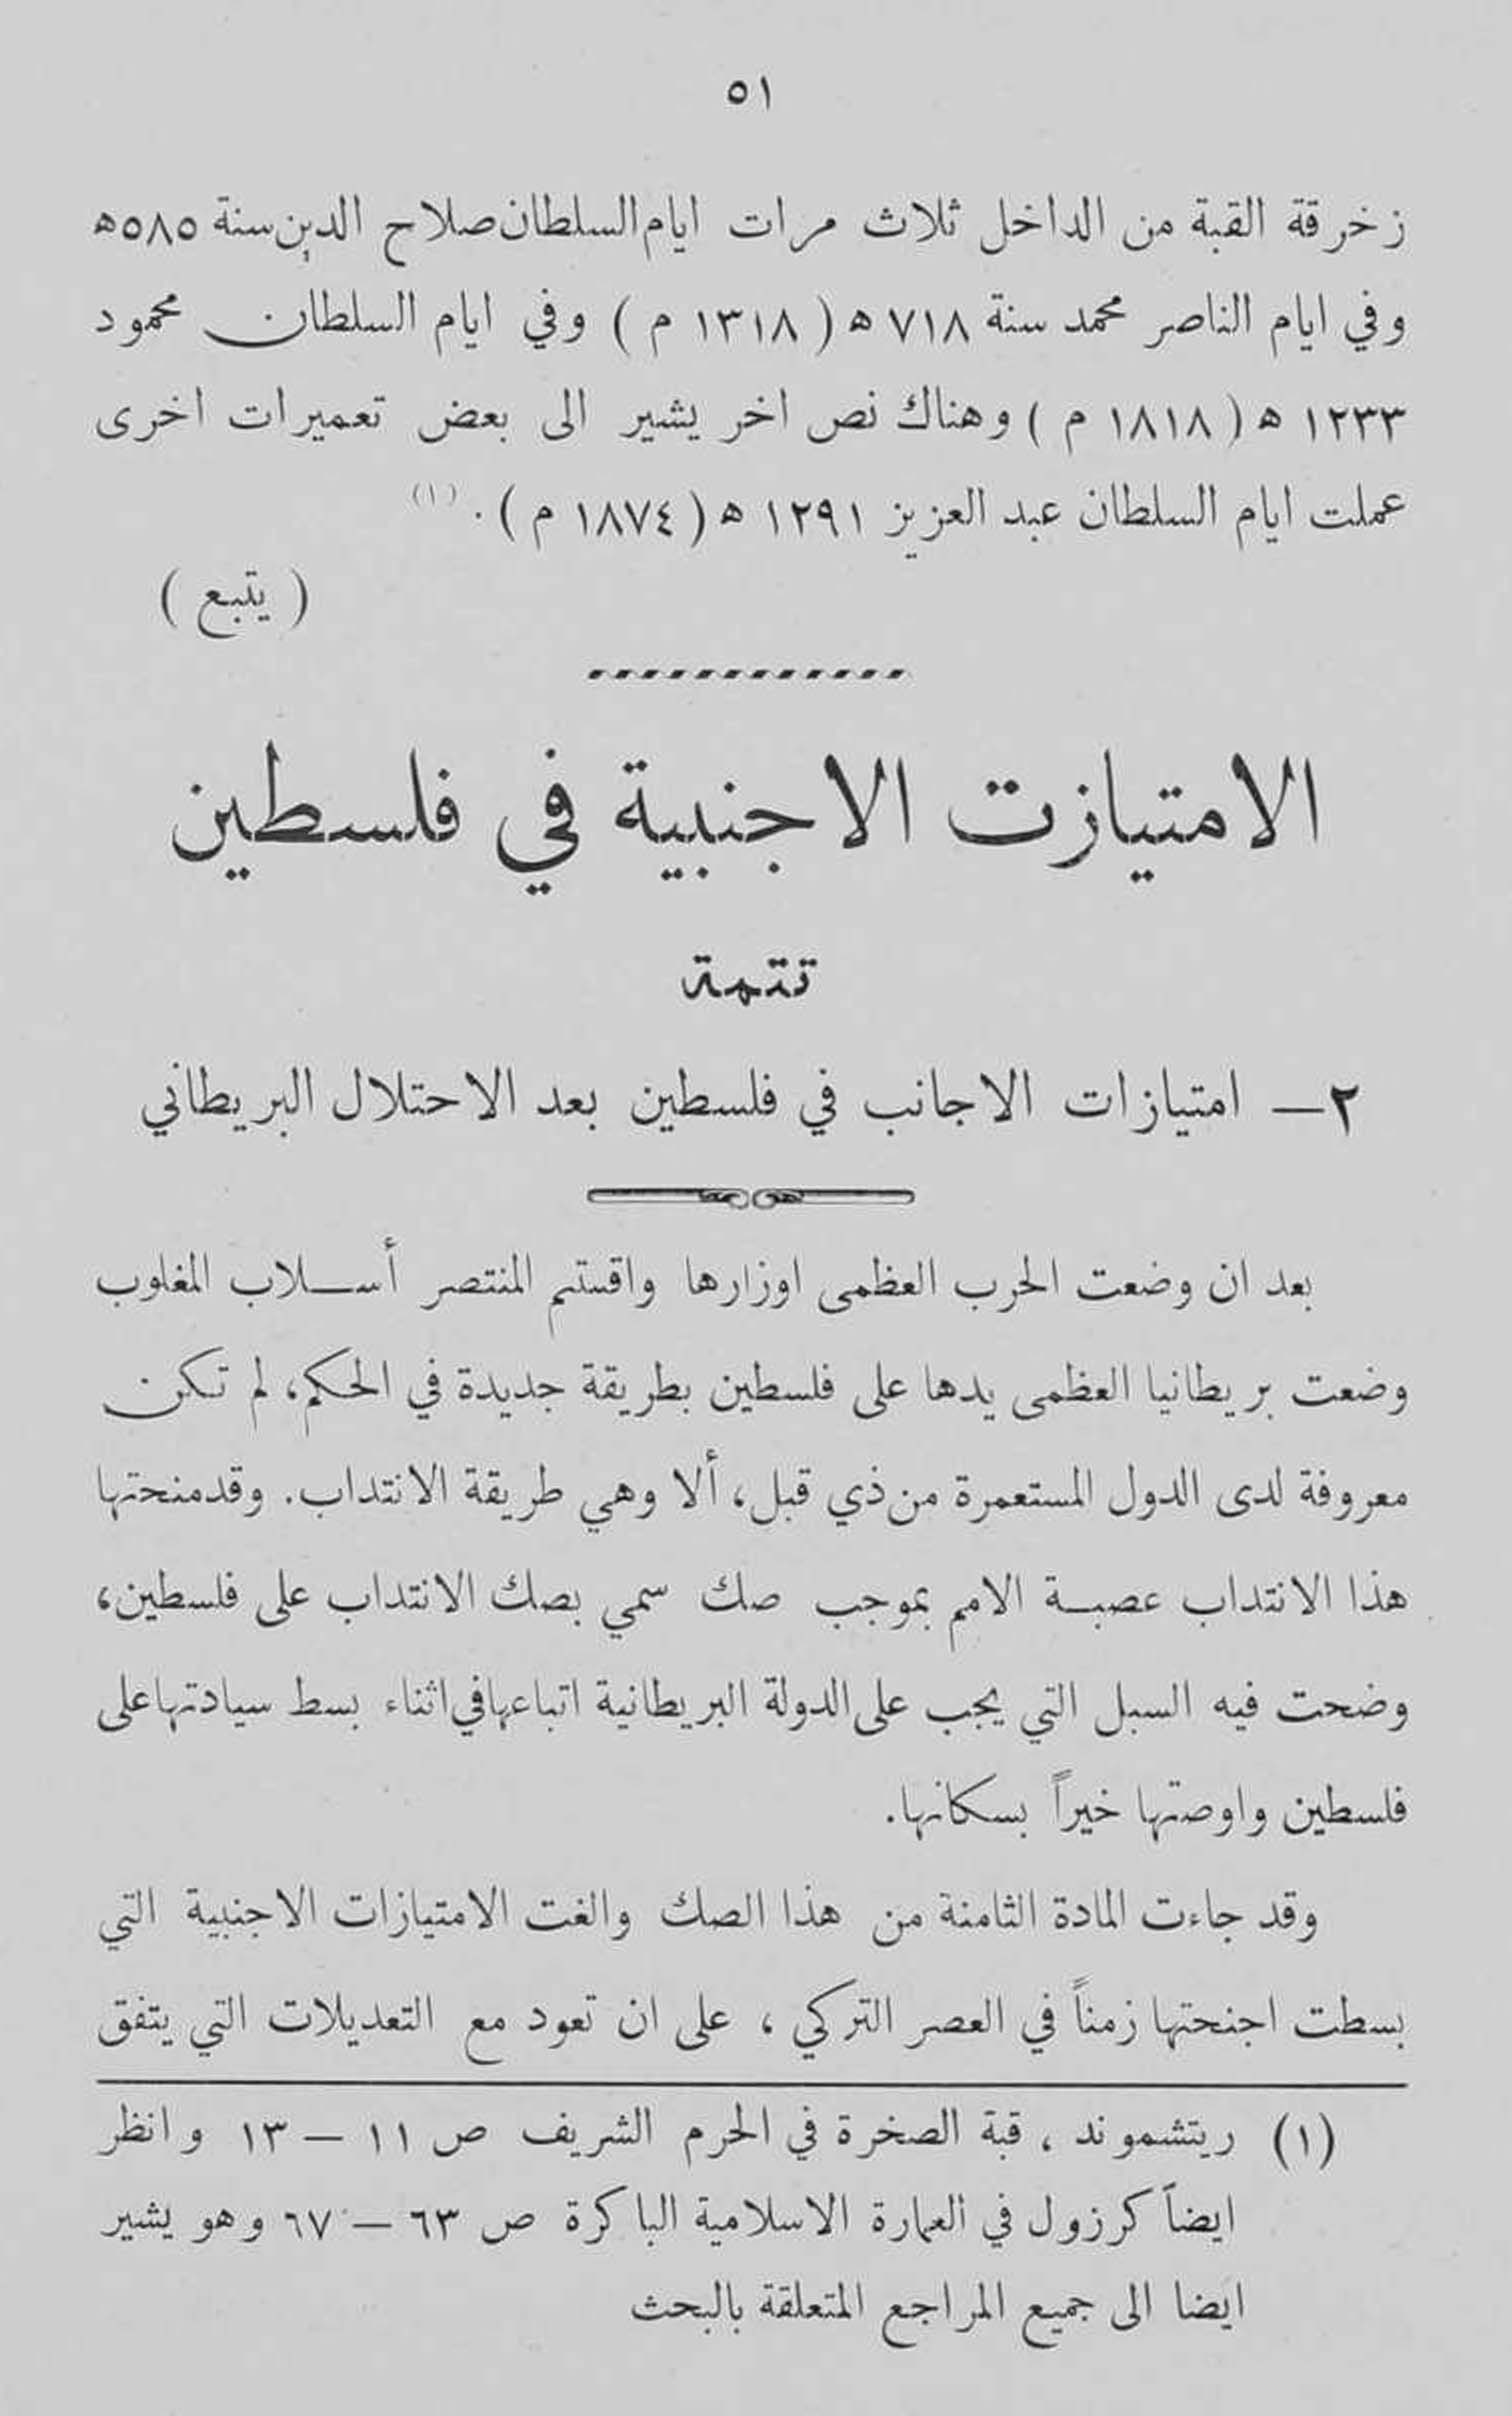 ٥١
زخرقة القبة من الداخل ثلاث مرات ايام السلطان صلاح الدين سنة ٥٨٥ه
وفي ايام الناصر محمد سنة ٧١٨ ه (١٣١٨ م ) وفي ايام السلطان محمود
١٢٣٣ ه (١٨١٨ م ) وهناك نص اخر يشير الى بعض تعميرات اخرى
عملت ايام السلطان عبد العزيز ١٢٩١ ه (١٨٧٤ م ) . (١)
( يتبع )
الامتيازت الاجنبية في فلسطين
تتمة
٢ — امتيازات الاجانب في فلسطين بعد الاحتلال البريطاني
بعد ان وضعت الحرب العظمى اوزارها واقستم المنتصر أسلاب المغلوب
وضعت بريطانيا العظمى يدها على فلسطين بطريقة جديدة في الحكم، لم تكن
معروفة لدى الدول المستعمرة من ذي قبل، ألا وهي طريقة الانتداب. وقد منحتها
هذا الانتداب عصبة الامم بموجب صك سمي بصك الانتداب على فلسطين،
وضحت فيه السبل التي يجب على الدولة البريطانية اتباعها في اثناء بسط سيادتها على
فلسطين واوصتها خيراً بسكانها.
وقد جاءت المادة الثامنة من هذا الصك والغت الامتيازات الاجنبية التي
بسطت اجنحتها زمناً في العصر التركي ، على ان تعود مع التعديلات التي يتفق
(١) ريتشموند ، قبة الصخرة في الحرم الشريف ص ١١ — ١٣ وانظر
ايضاً كرزول في العمارة الاسلامية الباكرة ص ٦٣ — ٦٧ وهو يشير
ايضا الى جميع المراجع المتعلقة بالبحث